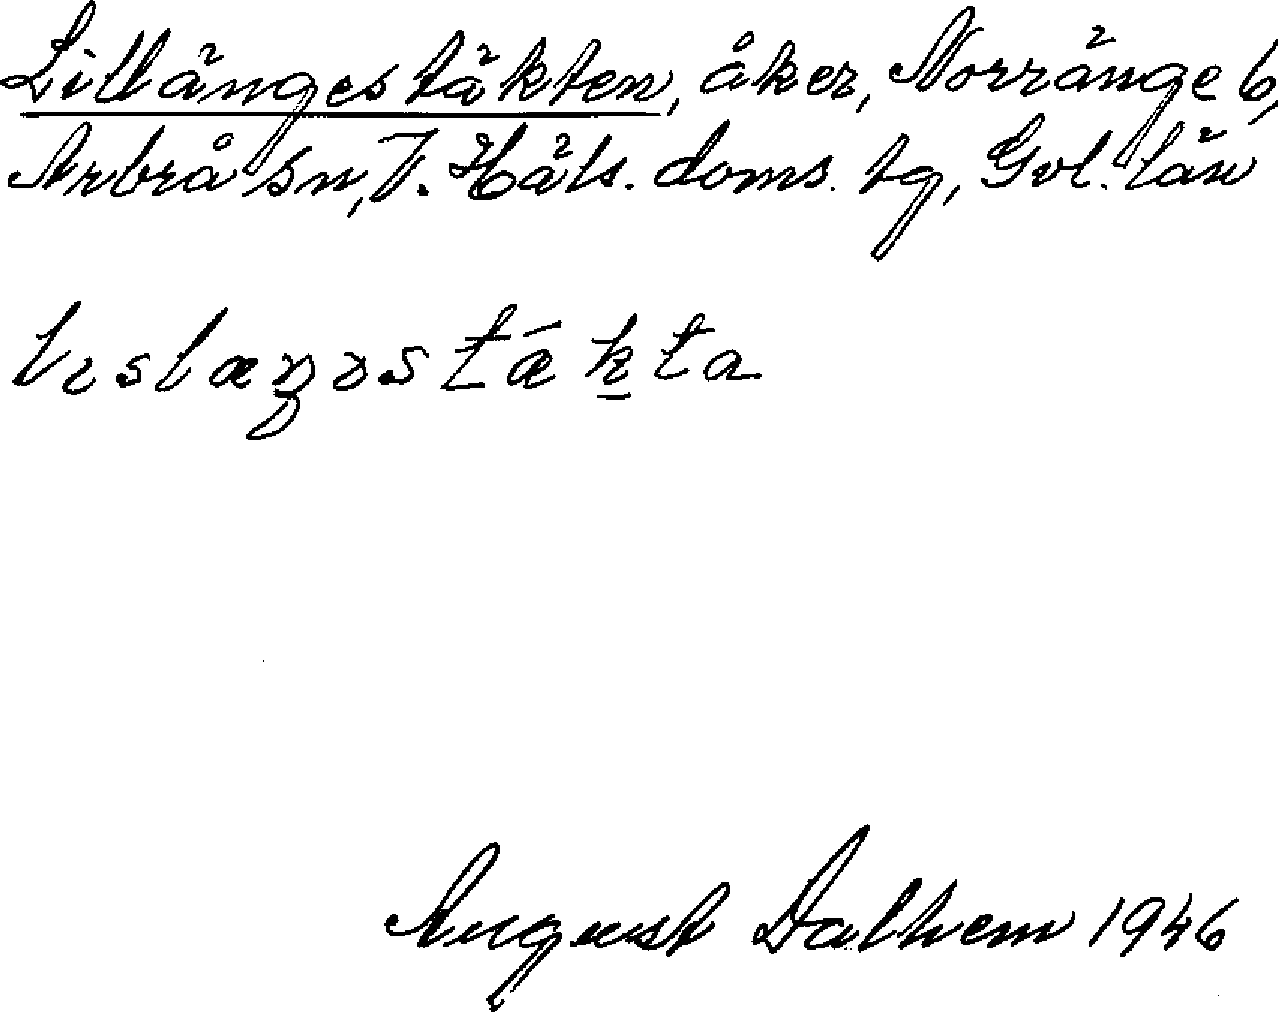 Lillängestäkten, åker, Norränge 6,
Arbrå sn, V. Häls. doms. tg, Gvl. län
August Dalhem 1946